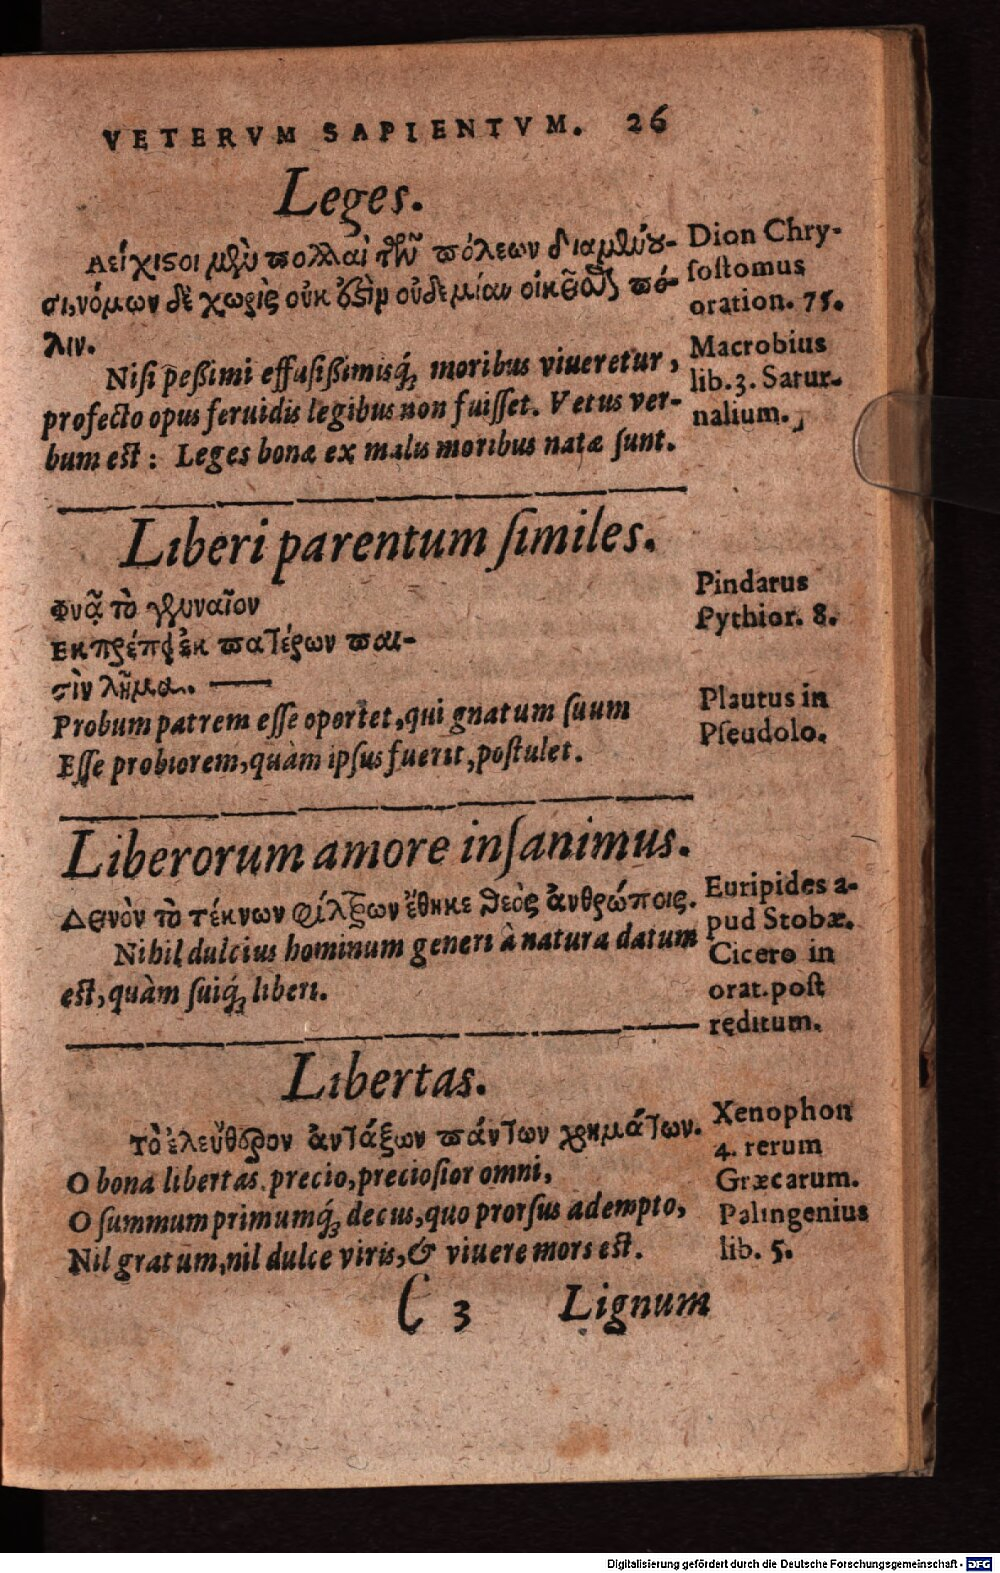 VETERVM SAPIENTVM. 26
Leges.
Ἀείχιστοι μὲν πολλαὶ τῶν πόλεων διαμένου-
σι, νόμων δὲ χωρὶς οὐκ ἔστιν οὐδεμίαν οἰκεῖσθαι πό-
λιν.
Dion Chry-
sostomus
oration. 75.
Nisi peßimi effusißimisq́; moribus viueretur,
profecto opus feruidis legibus non fuisset. Vetus ver-
bum est: Leges bonæ ex malis moribus natæ sunt.
Macrobius
lib. 3. Satur-
nalium.
Liberi parentum similes.
Φυᾷ τὸ γενναῖον
Ἐκπρέπει ἐκ πατέρων παι-
σὶν λῆμα.
Pindarus
Pythior. 8.
Probum patrem esse oportet, qui gnatum suum
Esse probiorem, quàm ipsus fuerit, postulet.
Plautus in
Pseudolo.
Liberorum amore insanimus.
Δεινὸν τὸ τέκνων φίλτρον ἔθηκε θεὸς ἀνθρώποις.
Euripides a-
pud Stobæ.
Nihil dulcius hominum generi à natura datum
est, quàm suiq́; liberi.
Cicero in
orat. post
reditum.
Libertas.
Τὸ ἐλεύθερον ἀντάξιον πάντων χρημάτων.
Xenophon
4. rerum
Græcarum.
O bona libertas precio, preciosior omni,
O summum primumq́; decus, quo prorsus adempto,
Nil gratum, nil dulce viris, & viuere mors est.
Palingenius
lib. 5.
C 3 Lignum
Digitalisierung gefördert durch die Deutsche Forschungsgemeinschaft - DFG